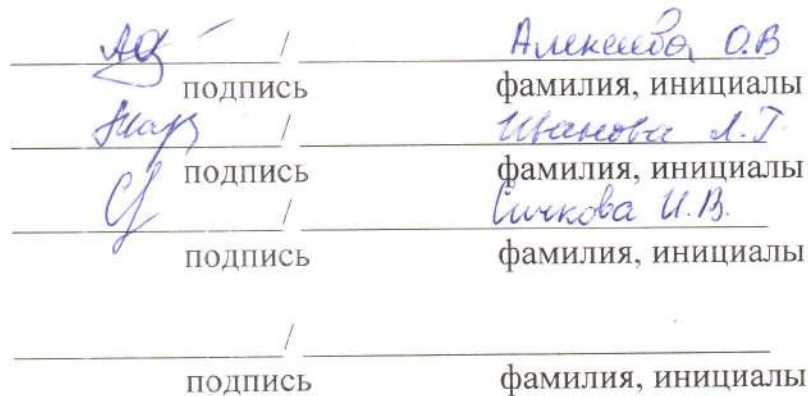 / Алексеева О.В
подпись фамилия, инициалы
/ Иванова Л.Г
подпись фамилия, инициалы
/ Сичкова И.В.
подпись фамилия, инициалы
/
подпись фамилия, инициалы